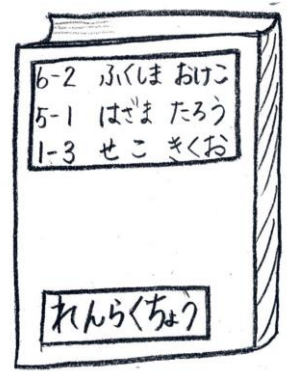 6-2 ふくしま おけこ
5-1 はざま たろう
1-3 せこ きくお
れんらくちょう